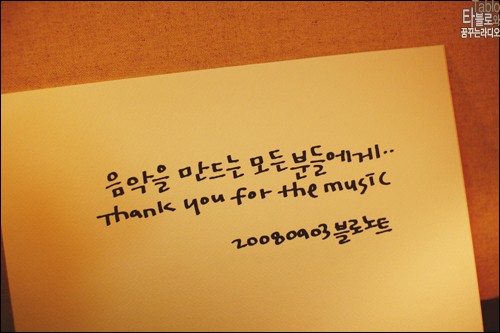 Tablo
타블로와
꿈꾸는라디오
음악을 만드는 모든분들에게..
Thank you for the music
20080903 블로노트